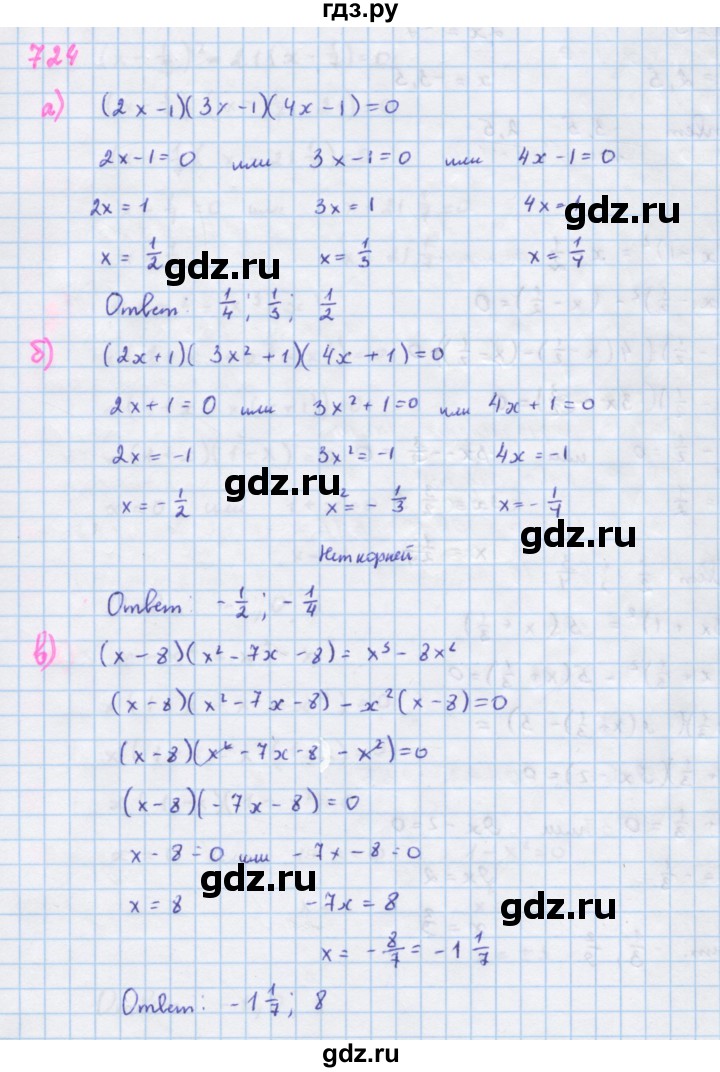 гдз.ру
724
а) (2x-1)(3x-1)(4x-1)=0
2x-1=0 или 3x-1=0 или 4x-1=0
2x=1 3x=1 4x=1
x=1/2 x=1/3 x=1/4
gdz.ru gdz.ru
Ответ: 1/4; 1/3; 1/2
б) (2x+1)(3x²+1)(4x+1)=0
2x+1=0 или 3x²+1=0 или 4x+1=0
2x=-1 3x²=-1 4x=-1
gdz.ru
x=-1/2 x²=-1/3 x=-1/4
gdz.ru
Нет корней
Ответ: -1/2; -1/4
в) (x-8)(x²-7x-8)=x³-8x²
(x-8)(x²-7x-8)-x²(x-8)=0
(x-8)(x²-7x-8-x²)=0
(x-8)(-7x-8)=0
x-8=0 или -7x-8=0
gdz.ru
x=8 -7x=8
gdz.ru
x=-8/7=-1 1/7
Ответ: -1 1/7; 8
gdz.ru